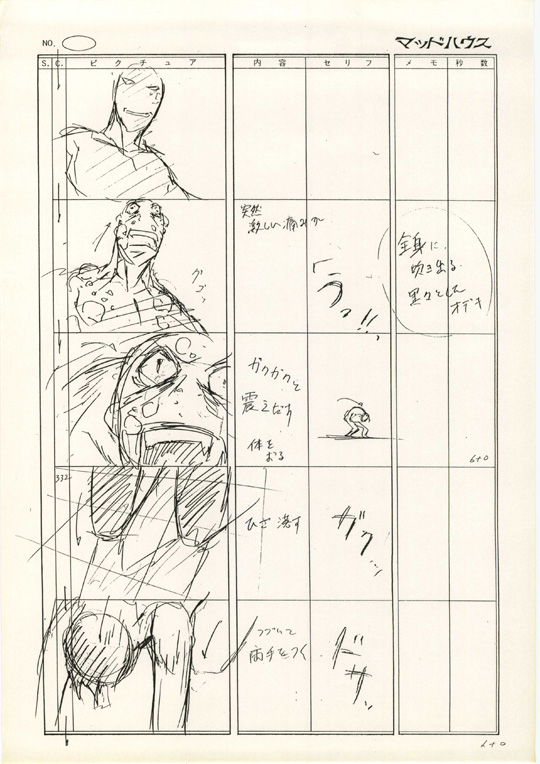 NO.
マッドハウス
S. C. ピクチュア 内容 セリフ メモ 秒数
突然
激しい痛みが
「うっ!!」
全身に
吹き出る
黒々とした
オデキ
ガクガクと
震えだす
体を
おる
6+0
332
ひざ落す
ガクッ
つづいて
両手をつく
ドサッ
6+0